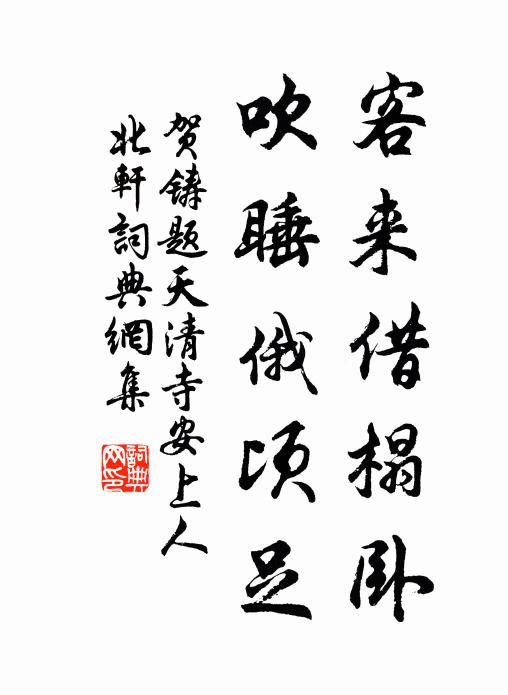 客来借榻卧
吹睡俄顷足
贺铸题天清寺安上人
北軒詞典網集
詞典网印